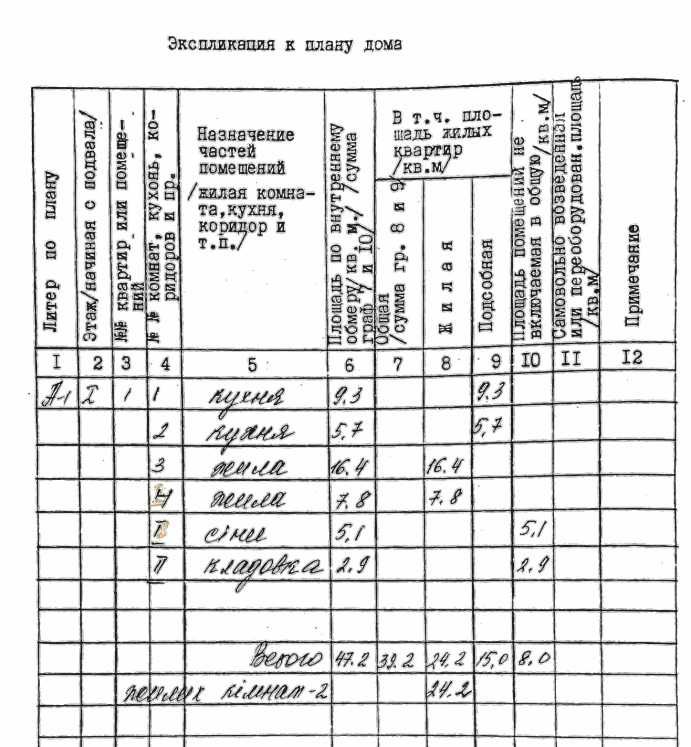 Экспликация к плану дома
Литер по плану
Этаж/начиная с подвала/
№№ квартир или помеще-
ний
№ № комнат, кухонь, ко-
ридоров и пр.
Назначение
частей
помещений
/жилая комна-
та,кухня,
коридор и
т.п./
Площадь по внутреннему
обмеру/кв. м./ /сумма
граф 7 и 10/
В т.ч. пло-
щадь жилых
квартир
/кв.м/
Общая
/сумма гр. 8 и 9/
Жилая
Подсобная
Площадь помещений не
включаемая в общую/кв.м/
Самовольно возведенная
или переоборудован.площадь
/кв.м/
Примечание
I 2 3 4 5 6 7 8 9 IO II I2
А-1 I 1 1 кухня 9.3 9.3
2 кухня 5,7 5,7
3 жила 16.4 16.4
4 жила 7.8 7.8
I сіни 5,1 5,1
II кладовка 2.9 2.9
Всього 47.2 39.2 24.2 15,0 8.0
жилих кімнат-2 24.2